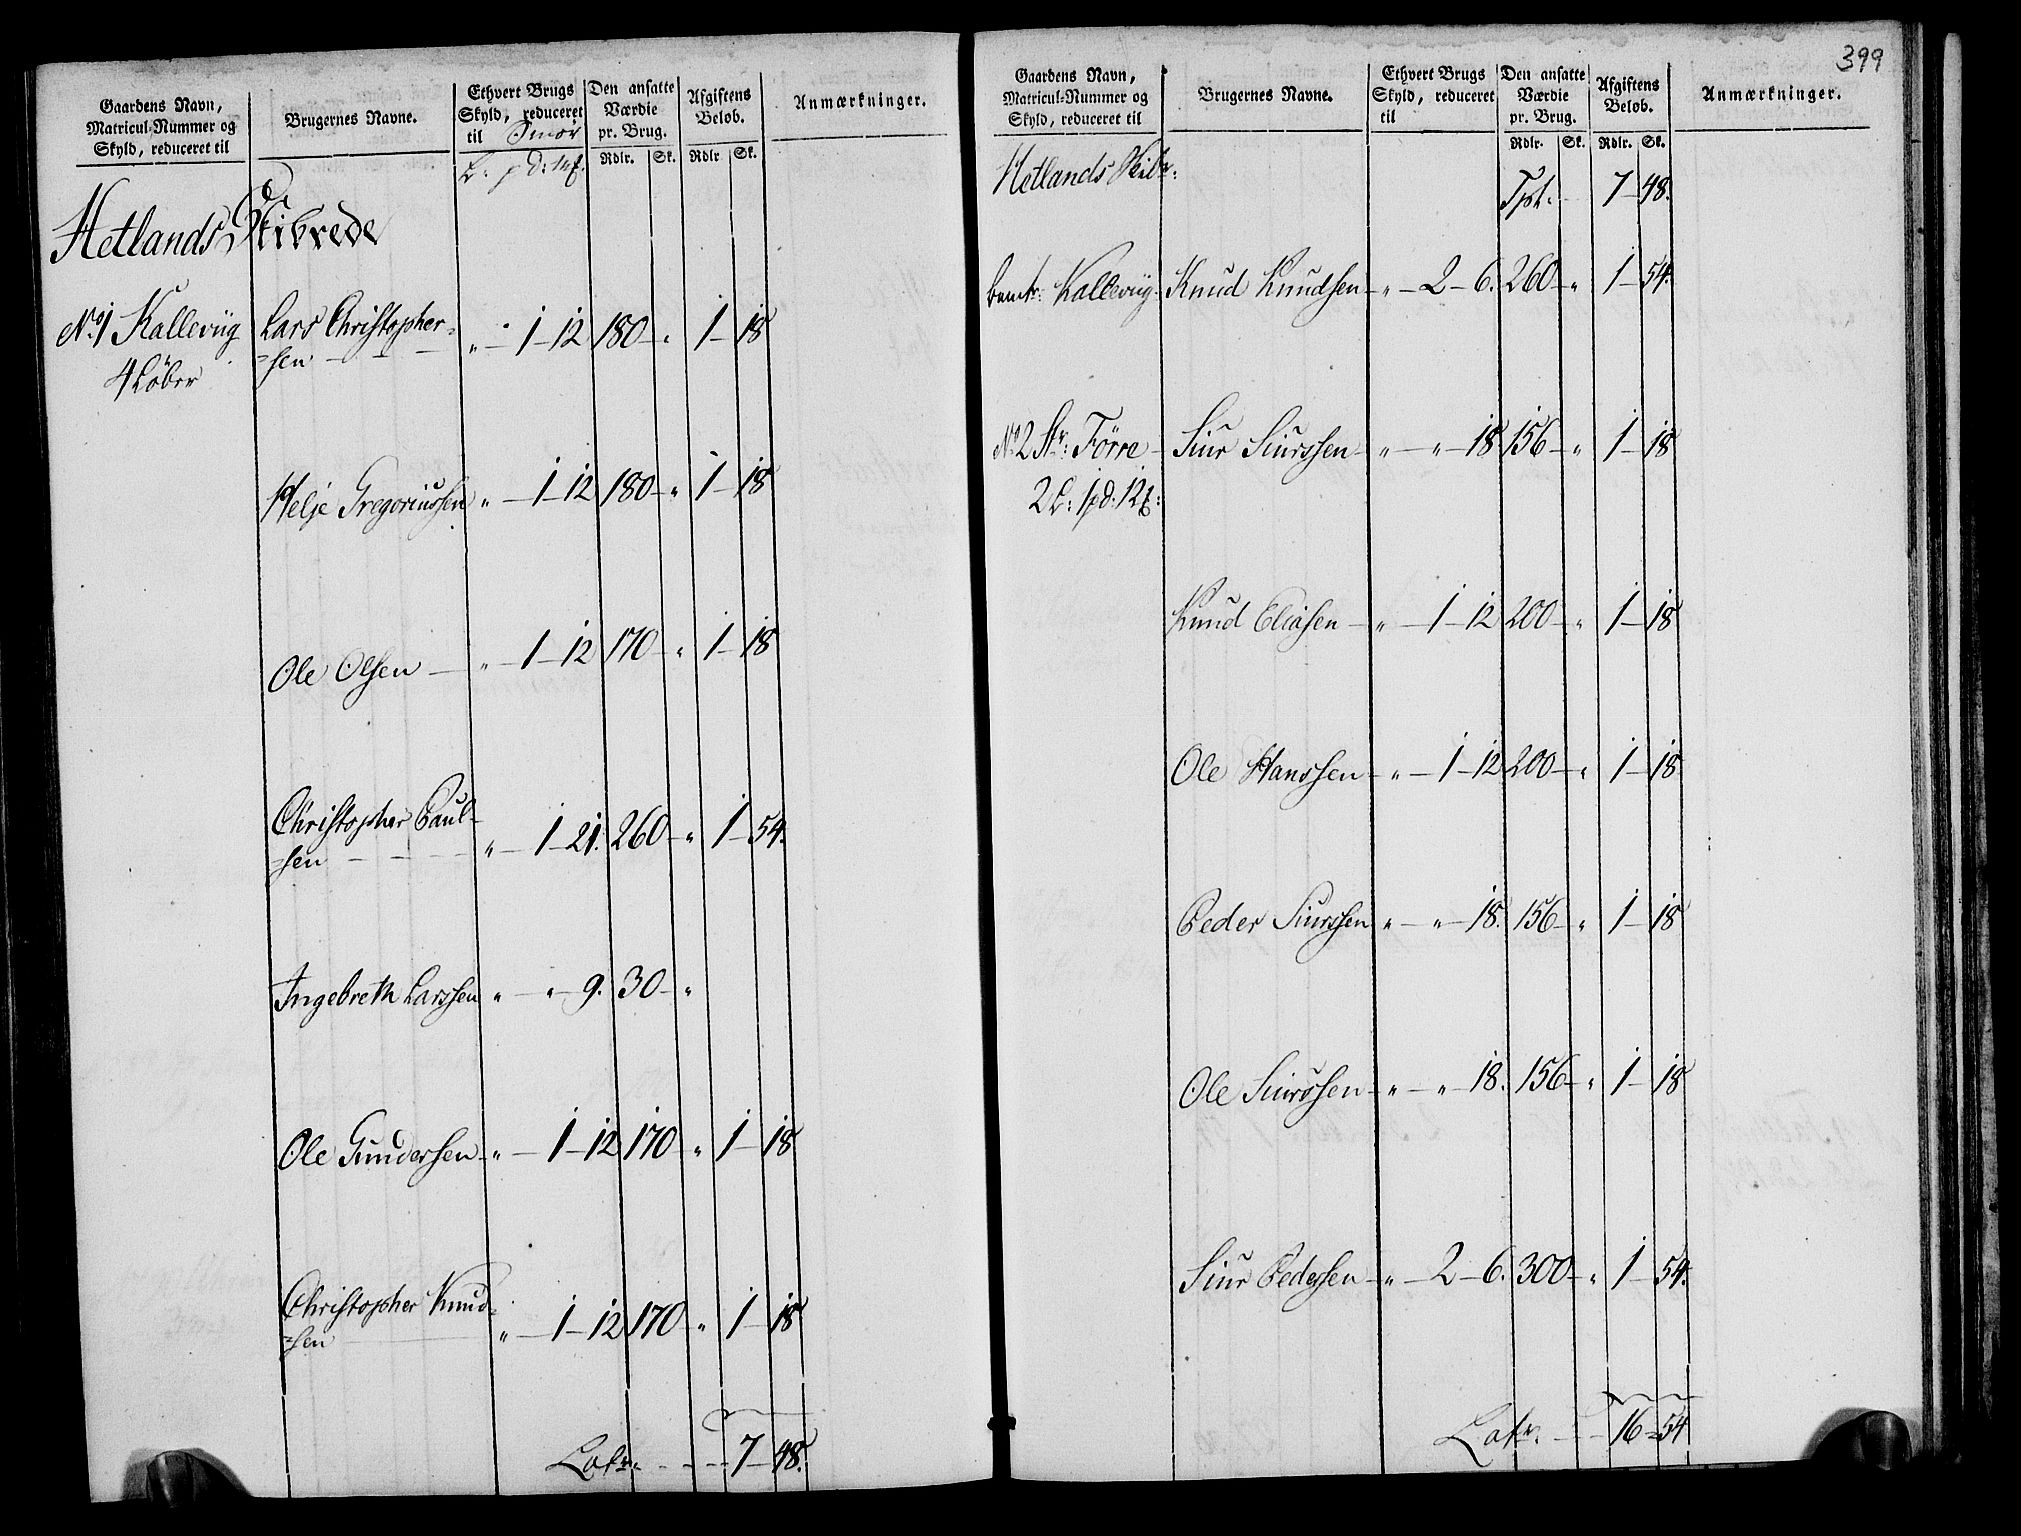 Gaardens Navn,
Matricul-Nummer og
Skyld, reduceret til
Brugernes Navne.
Ethvert Brugs
Skyld, reduceret
til Smør
Den ansatte
Værdie
pr. Brug.
Afgiftens
Beløb.
Anmærkninger.
L: pd: mk.
Rdlr. Sk. Rdlr Sk.
Hetlands Skibrede
No. 1 Kallevüg Lars Christopher=
=sen — — — „ — 1 — 12 180 — „ 1 — 18
4 Löber
Helje Gregoriussen „ — 1 — 12 180 — „ 1 — 18
Ole Olsen — „ — 1 — 12 170 — „ 1 — 18
Christopher Paul-
=sen — — — „ — 1 — 21. 260 — „ 1 — 54.
Ingebreth Larssen „ — „ — 9. 30 — „
Ole Gundersen — „ — 1 — 12 170 „ 1 — 18
Christopher Knud=
=sen — „ — 1 — 12 170 — „ 1 — 18
Latr: - - - 7 — 48.
399
Gaardens Navn,
Matricul-Nummer og
Skyld, reduceret til
Brugernes Navne.
Ethvert Brugs
Skyld, reduceret
til
Den ansatte
Værdie
pr. Brug.
Afgiftens
Beløb.
Anmærkninger.
Rdlr. Sk. Rdlr. Sk.
Hetlands Skibr:
Tpt: - - 7 — 48.
Kallevüg Knud Knudsen — „ — 2 — 6. 260 — „ 1 — 54.
No. 2 Str:Förre — Siur Siurssen — „ — „ — 18 156 — „ 1 — 18
2 L: 1 pd. 12 mk:
Knud Eliasen — „ — 1 — 12 200 — „ 1 — 18
Ole Hanssen — „ — 1 — 12 200 — „ 1 — 18
Peder Siurssen „ — „ — 18. 156 — „ 1 — 18
Ole Siurssen — „ — „ — 18. 156 — „ 1 — 18
Siur Pedersen — „ — 2 — 6. 300 — „ 1 — 54.
Latr. - - - 16 = 54